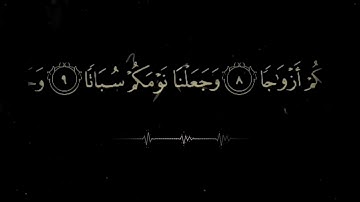 كُمْ أَزْوَٰجًا ٨ وَجَعَلْنَا نَوْمَكُمْ سُبَاتًا ٩ وَجَ